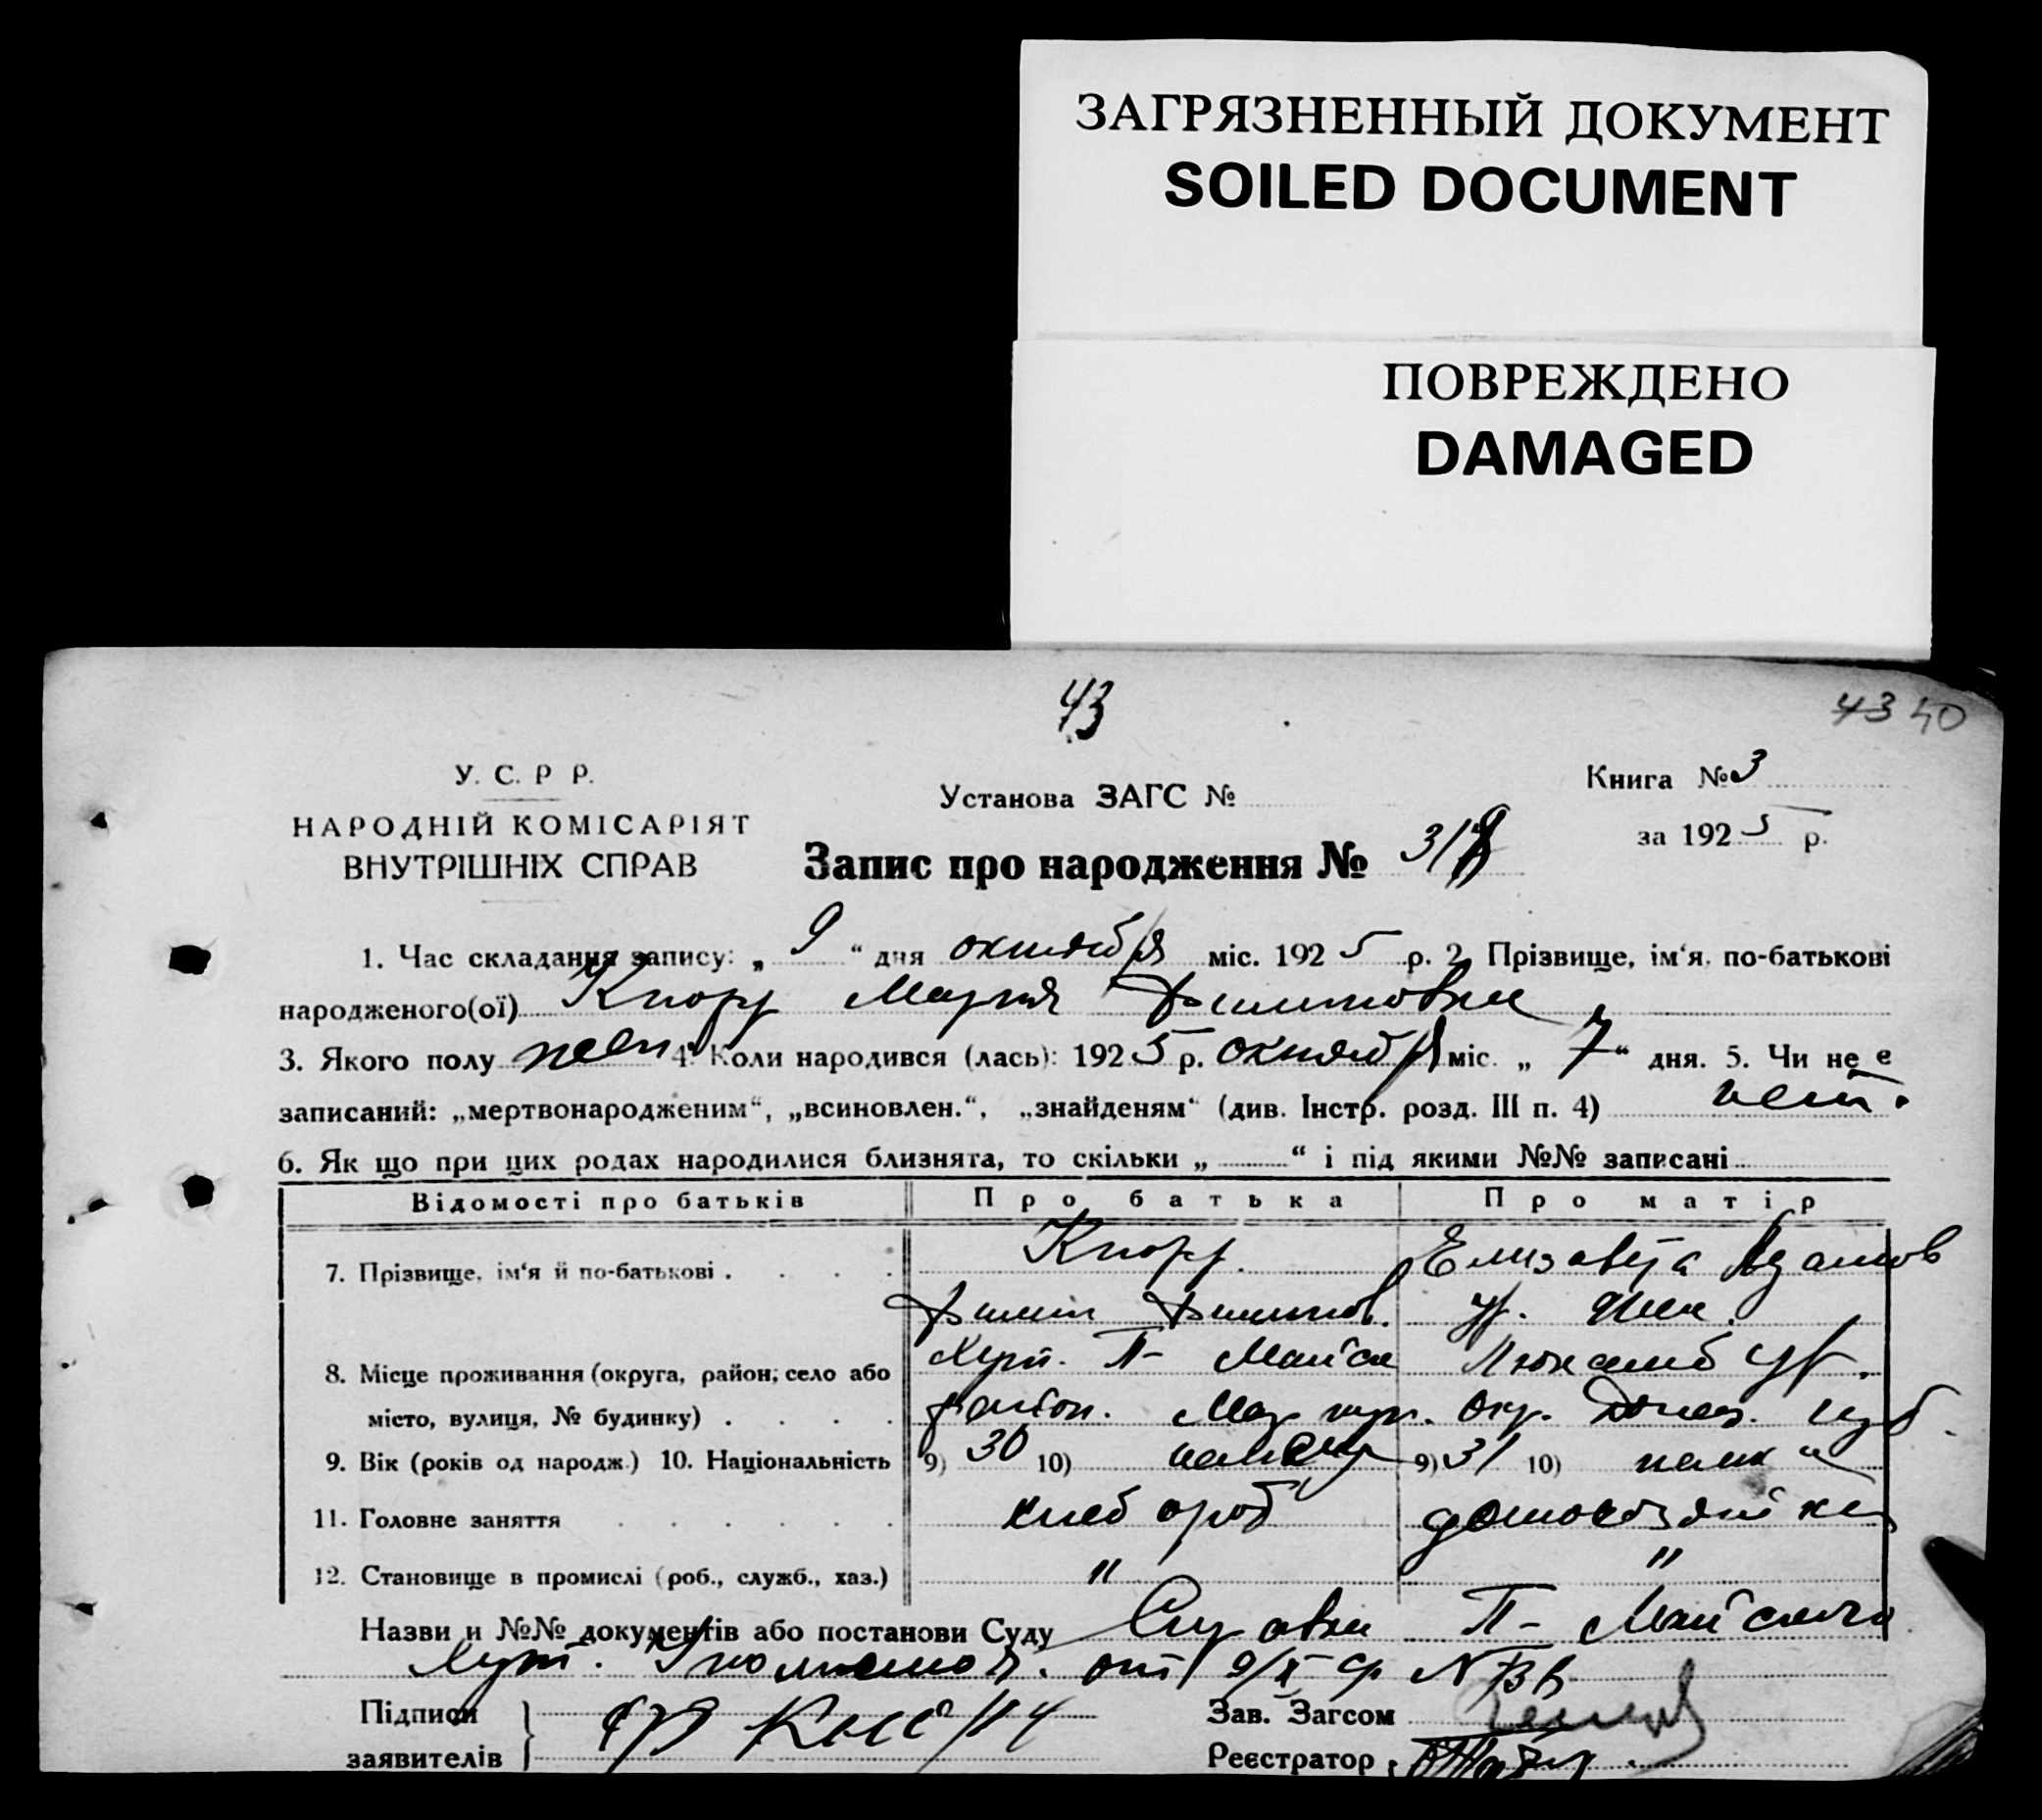 ЗАГРЯЗНЕННЫЙ ДОКУМЕНТ
SOILED DOCUMENT
ПОВРЕЖДЕНО
DAMAGED
43
43 40
У. С. Р Р.
НАРОДНІЙ КОМІСАРІЯТ
ВНУТРІШНІХ СПРАВ
Установа ЗАГС №
Запис про народження №
Книга № 3
за 1925 р.
1. Час складання запису: „ 9 “ дня октября міс. 1925 р. 2. Прізвище, ім‘я, по-батькові
народженого(ої) Кнорр Мария Филиповна
3. Якого полу жен 4. Коли народився (лась): 1925 р. октября міс. „ 7 “ дня. 5. Чи не е
записаний: „мертвонародженим“, „всиновлен.“, „знайденям“ (див. Інстр. розд. III п. 4) нет.
6. Як що при цих родах народилися близнята, то скільки „ “ і під якими №№ записані
Відомості про батьків Про батька Про матір
7. Прізвище, ім‘я й по-батькові . Кнорр. Елизавета Адамов
Филип Филипов. ур.
8. Місце проживання (округа, район, село або Хут. Майск Люксемб ур.
місто, вулиця, № будинку) район. Мариуп. окр. Донец. губ.
9. Вік (років од народж.) 10. Національність 9) 30 10) немец 9) 31 10) немка
11. Головне заняття хлебороб домохозяйка
12. Становище в промислі (роб., служб., хаз.) " "
Назви и №№ документів або постанови Суду Справка П- Майского
Хут. от 9/X
Підписи
заявителів
Зав. Загсом
Реєстратор